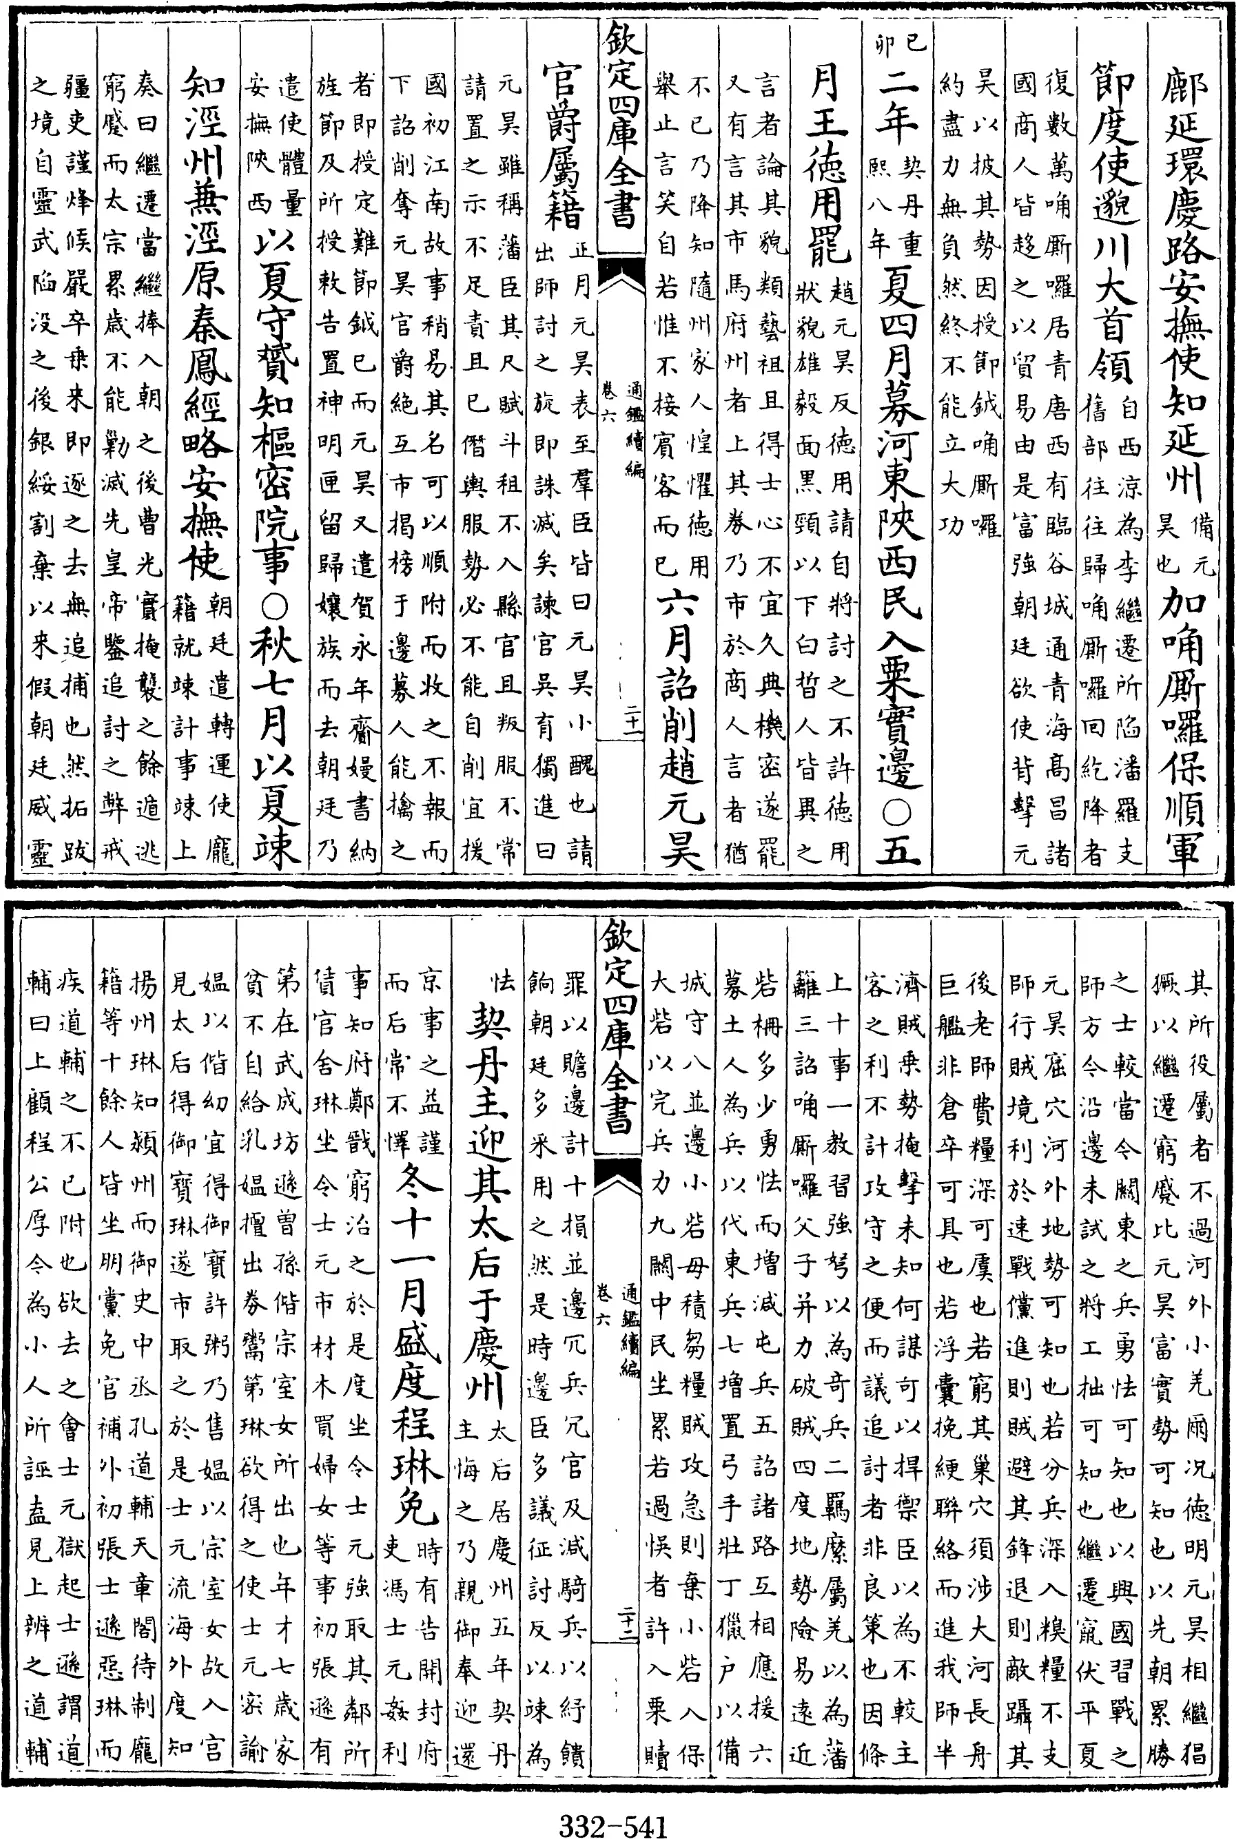 鄜延環慶路安撫使知延州備元
昊也加唃厮囉保順軍
節度使邈川大首領自西涼為李繼遷所陷潘羅支
舊部往往歸唃厮囉回紇降者
復數萬唃厮囉居青唐西有臨谷城通青海髙昌諸
國商人皆趍之以貿易由是富強朝廷欲使背擊元
昊以披其勢因授節鉞唃厮囉
約盡力無負然終不能立大功
己卯二年契丹重
熙八年夏四月募河東陝西民入粟實邊○五
月王德用罷趙元昊反德用請自將討之不許德用
狀貌雄毅面黑頸以下白晳人皆異之
言者論其貌類藝祖且得士心不宜久典機密遂罷
又有言其市馬府州者上其券乃市於商人言者猶
不已乃降知隨州家人惶懼德用
舉止言笑自若惟不接賓客而已六月詔削趙元昊
欽定四庫全書
通鑑續編
卷六
二十一
官爵屬籍正月元昊表至羣臣皆曰元昊小醜也請
出師討之旋即誅滅矣諫官吳育獨進曰
元昊雖稱藩臣其尺賦斗租不入縣官且叛服不常
請置之示不足責且已僭輿服勢必不能自削宜援
國初江南故事稍易其名可以順附而收之不報而
下詔削奪元昊官爵絶互市揭榜于邊募人能擒之
者即授定難節鉞已而元昊又遣賀永年齎嫚書納
旌節及所授敕告置神明匣留歸孃族而去朝廷乃
遣使體量
安撫陝西以夏守贇知樞密院事○秋七月以夏竦
知涇州兼涇原秦鳳經略安撫使朝廷遣轉運使龐
籍就竦計事竦上
奏曰繼遷當繼捧入朝之後曹光實掩襲之餘遁逃
窮蹙而太宗累歲不能勦滅先皇帝鑒追討之弊戒
疆吏謹烽候嚴卒乗来即逐之去無追捕也然拓跋
之境自靈武陷没之後銀綏割棄以来假朝廷威靈
其所役屬者不過河外小羌爾况德明元昊相繼猖
獗以繼遷窮蹙比元昊富實勢可知也以先朝累勝
之士較當今關東之兵勇怯可知也以興國習戰之
師方今沿邊未試之將工拙可知也繼遷竄伏平夏
元昊窟穴河外地勢可知也若分兵深入糗糧不支
師行賊境利於速戰儻進則賊避其鋒退則敵躡其
後老師費糧深可虞也若窮其巢穴須涉大河長舟
巨艦非倉卒可具也若浮囊挽綆聯絡而進我師半
濟賊乗勢掩擊未知何謀可以捍禦臣以為不較主
客之利不計攻守之便而議追討者非良策也因條
上十事一教習強弩以為奇兵二羈縻屬羌以為藩
籬三詔唃厮囉父子并力破賊四度地勢險易逺近
砦柵多少勇怯而增減屯兵五詔諸路互相應援六
募土人為兵以代東兵七增置弓手壯丁獵户以備
城守八並邊小砦毋積芻糧賊攻急則棄小砦入保
大砦以完兵力九關中民坐累若過悮者許入粟贖
欽定四庫全書
通鑑續編
卷六
二十二
罪以贍邊計十損並邊冗兵冗官及減騎兵以紓饋
餉朝廷多采用之然是時邊臣多議征討反以竦為
怯契丹主迎其太后于慶州太后居慶州五年契丹
主悔之乃親御奉迎還
京事之益謹
而后常不懌冬十一月盛度程琳免時有告開封府
吏馮士元姦利
事知府鄭戬窮治之於是度坐令士元強取其鄰所
賃官舍琳坐令士元市材木買婦女等事初張遜有
第在武成坊遜曾孫偕宗室女所出也年才七歲家
貧不自給乳媪擅出券鬻第琳欲得之使士元宻諭
媪以偕幼宜得御寶許粥乃售媪以宗室女故入宮
見太后得御寶琳遂市取之於是士元流海外度知
揚州琳知潁州而御史中丞孔道輔天章閣待制龐
籍等十餘人皆坐朋黨免官補外初張士遜惡琳而
疾道輔之不已附也欲去之會士元獄起士遜謂道
輔曰上顧程公厚今為小人所誣盍見上辨之道輔
332-541